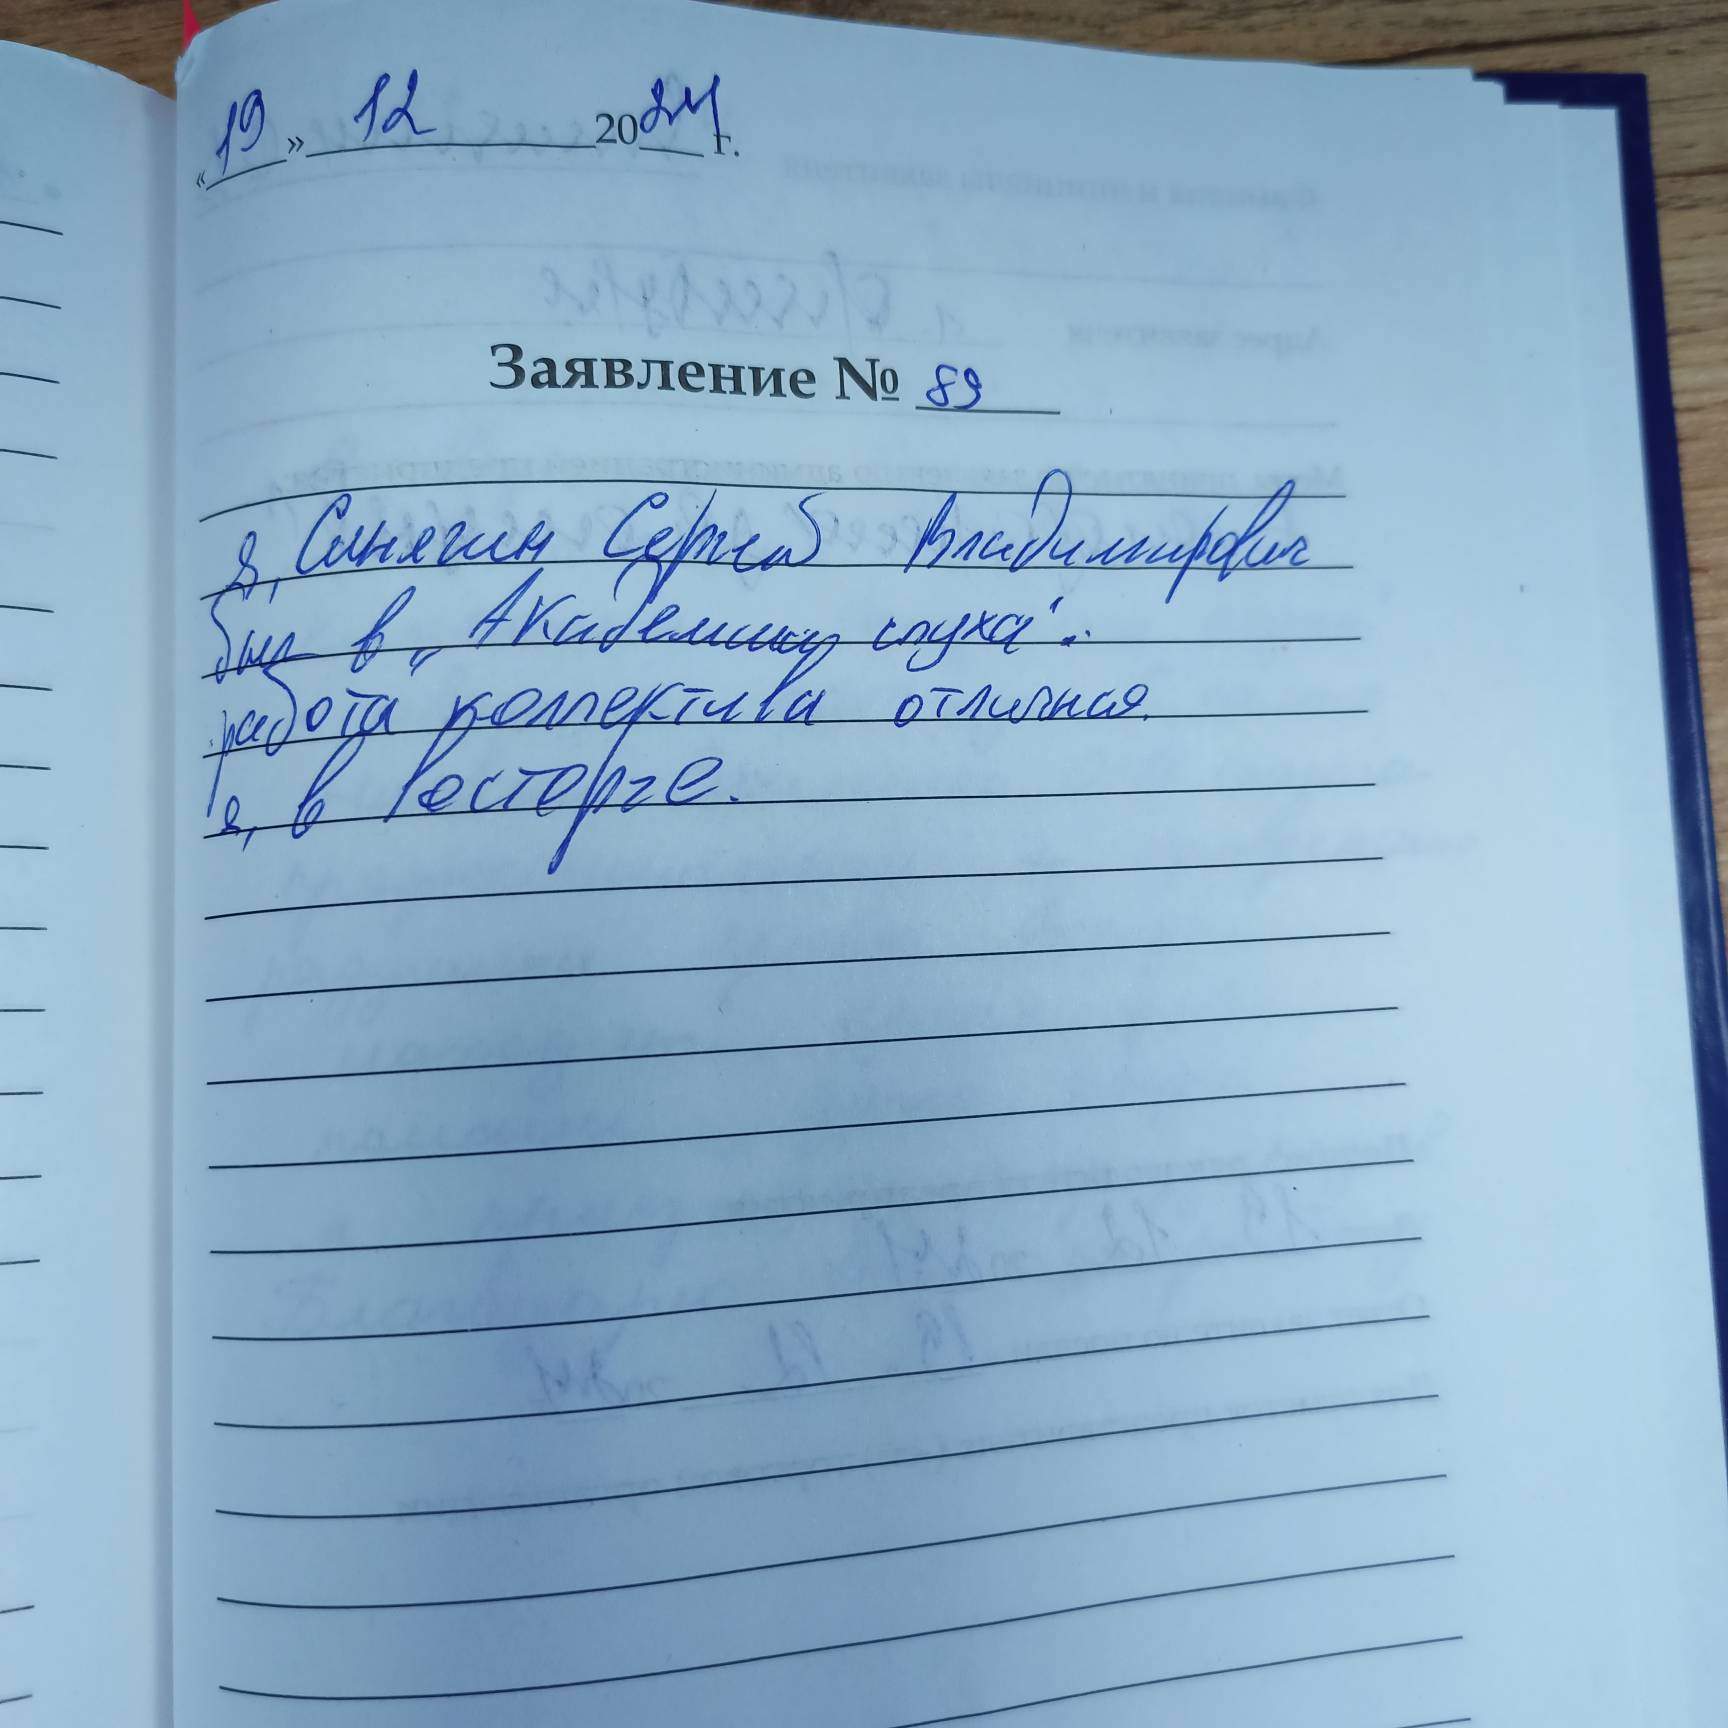 «19» 12 2024 г.
Заявление № 89
Я, Синягин Сергей Владимирович
был в „Академии слуха".
работа коллектива отличная.
я, в восторге.